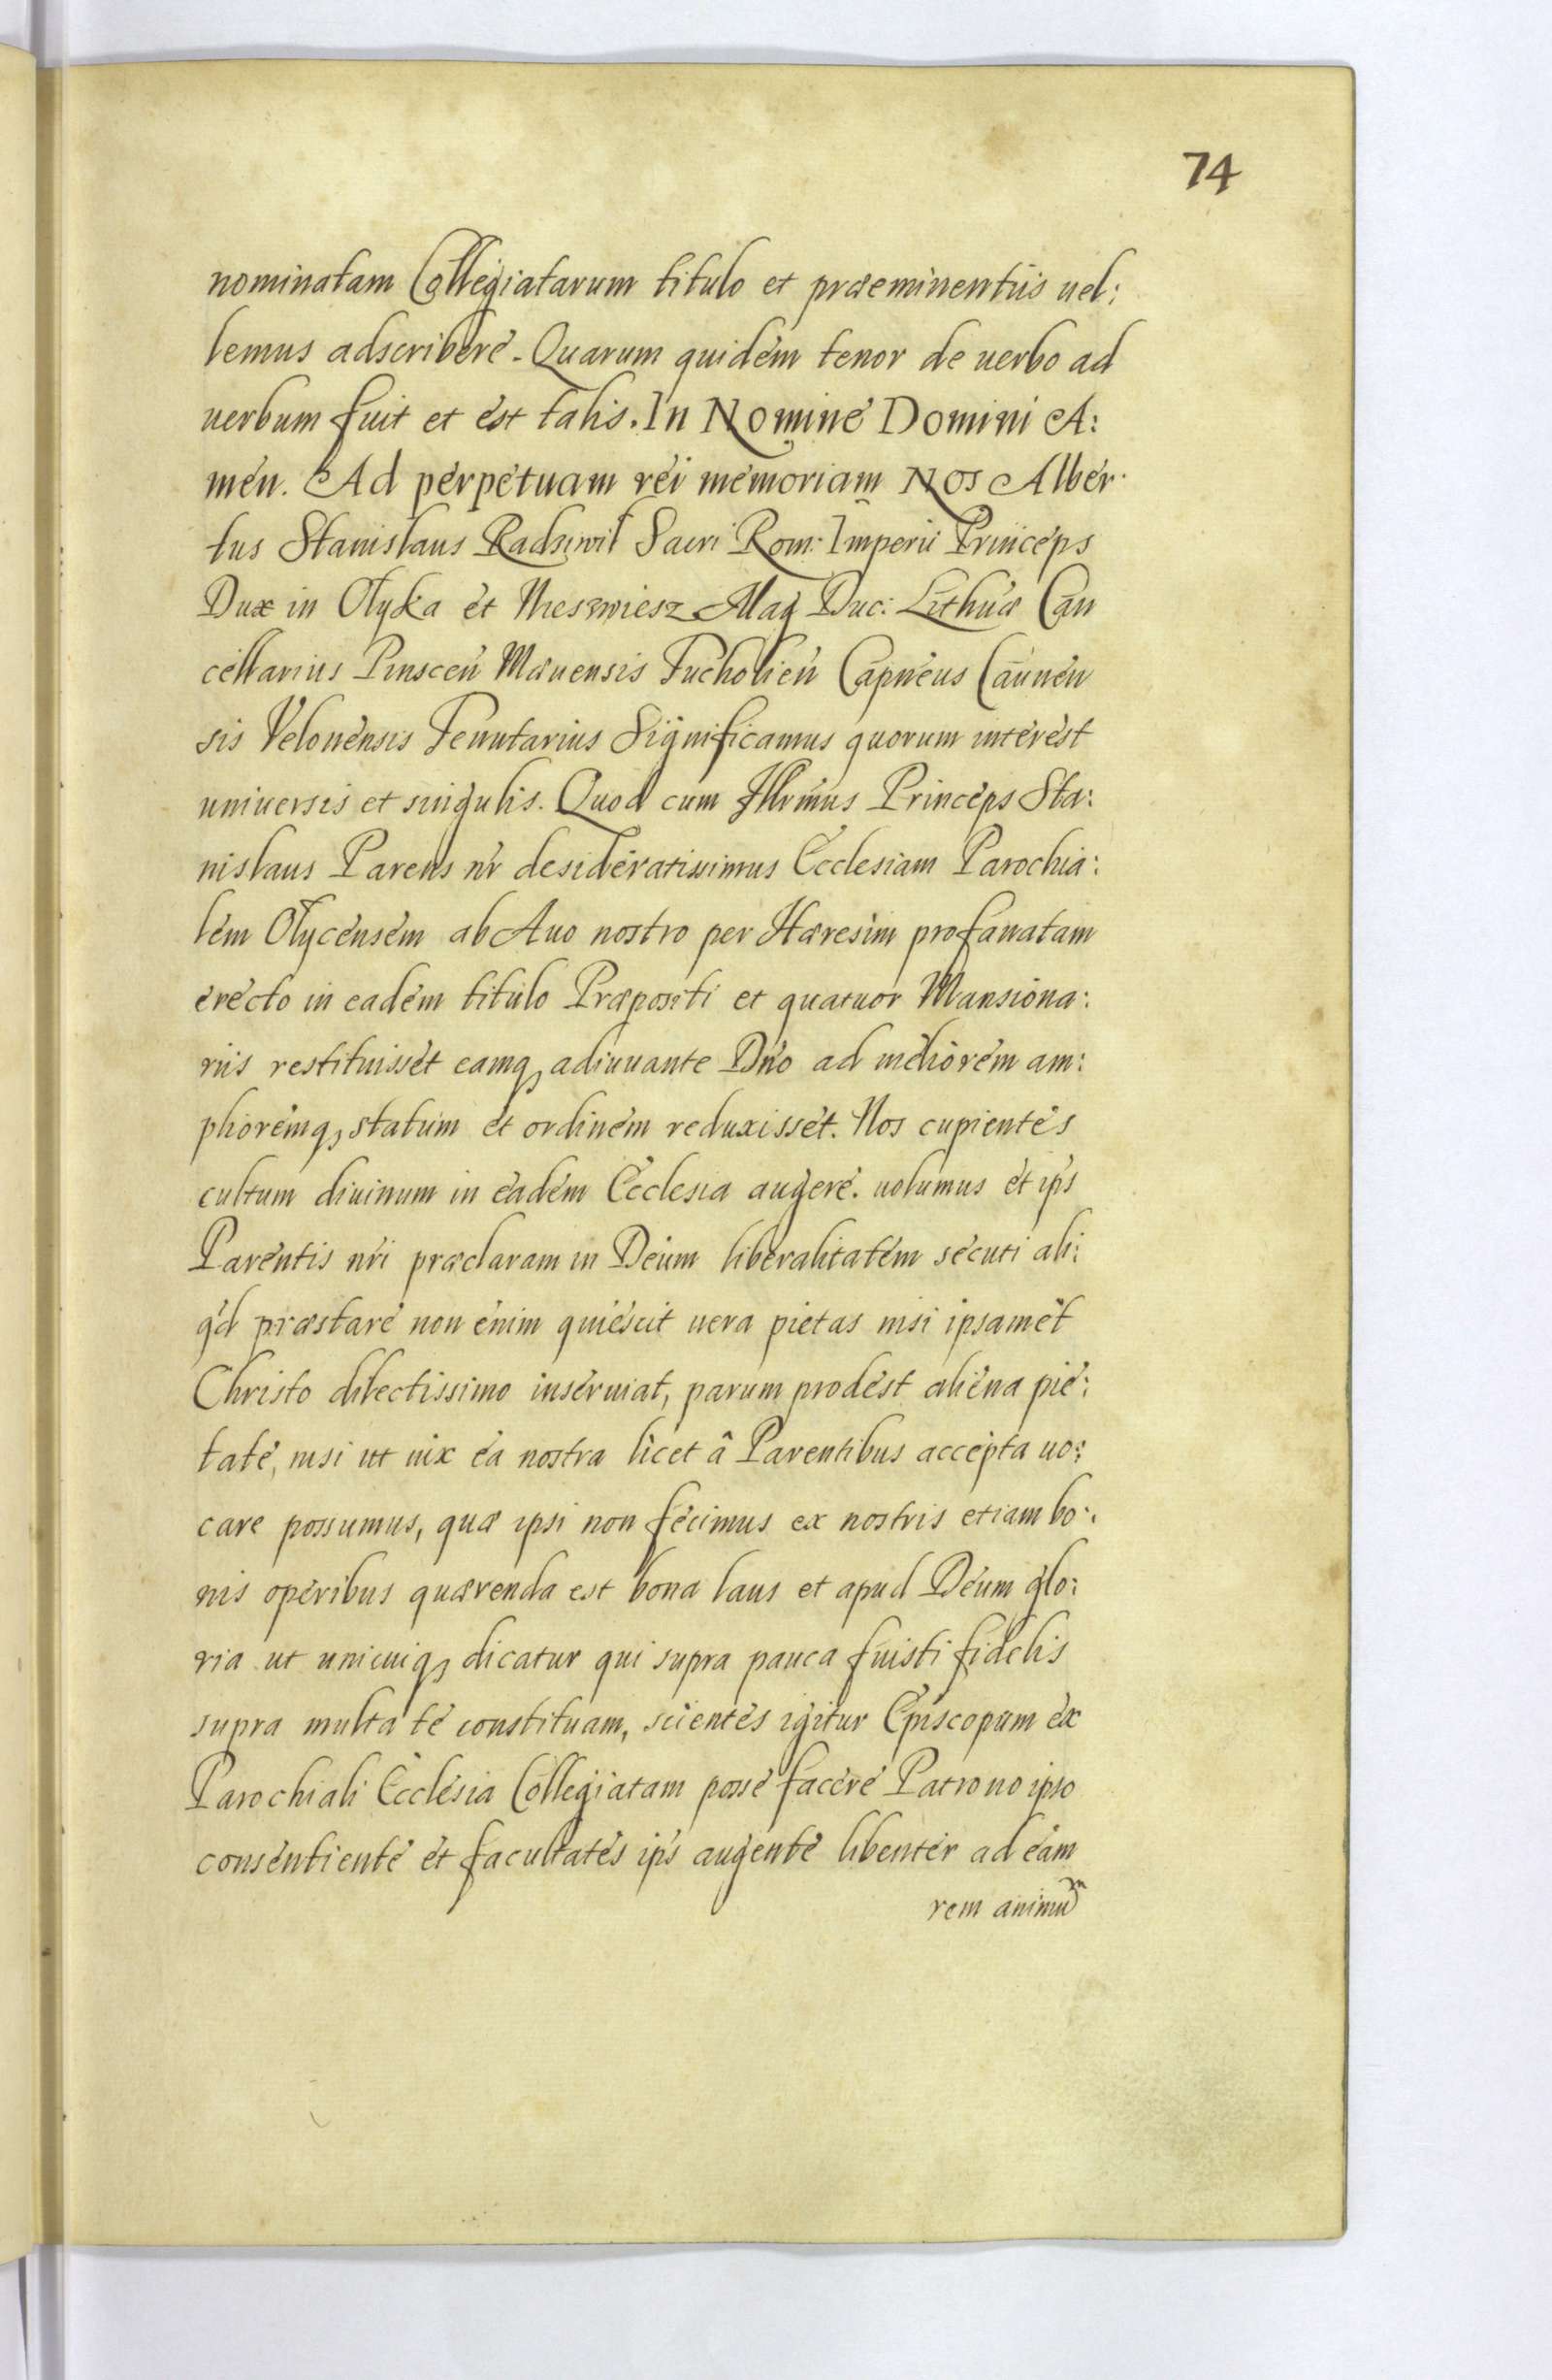 74
nominatam Collegiatarum titulo et præeminentiis uel:
lemus adscribere. Quarum quidem tenor de uerbo ad
uerbum fuit et est talis. In Nomine Domini A:
men. Ad perpetuam rei memoriam Nos Alber:
tus Stanislaus Radziwil Sacri Rom: Imperii Princeps
Dux in Olyka et Nieszwiesz Mag Duc: Lithuæ Can
cellarius Pinsceñ Tucholieñ Capneus Caunen
sis Velonensis Tenutarius Significamus quorum interest
uniuersis et singulis. Quod cum Illrimus Princeps Sta:
nislaus Parens nr desideratissimus Ecclesiam Parochia:
lem Olycensem ab Auo nostro per Hæresim profanatam
erecto in eadem titulo Præpositi et quatuor Mansiona:
riis restituisset eamq, adiuuante Dno ad meliorem am:
plioremq, statum et ordinem reduxisset. Nos cupientes
cultum diuinum in eadem Ecclesia augere. uolumus et ips
Parentis nri præclaram in Deum liberalitatem secuti ali:
qd præstare non enim quiescit uera pietas nisi ipsamet
Christo dilectissimo inseruiat, parum prodest aliena pie:
tate, nisi ut uix ea nostra licet â Parentibus accepta uo:
care possumus, quæ ipsi non fecimus ex nostris etiam bo:
nis operibus quærenda est bona laus et apud Deum glo:
ria ut unicuiq, dicatur qui supra pauca fuisti fidelis
supra multa te constituam, scientes igitur Episcopum ex
Parochiali Ecclesia Collegiatam posse facere Patrono ipso
consentiente et facultates ips augente libenter ad eam
rem animum